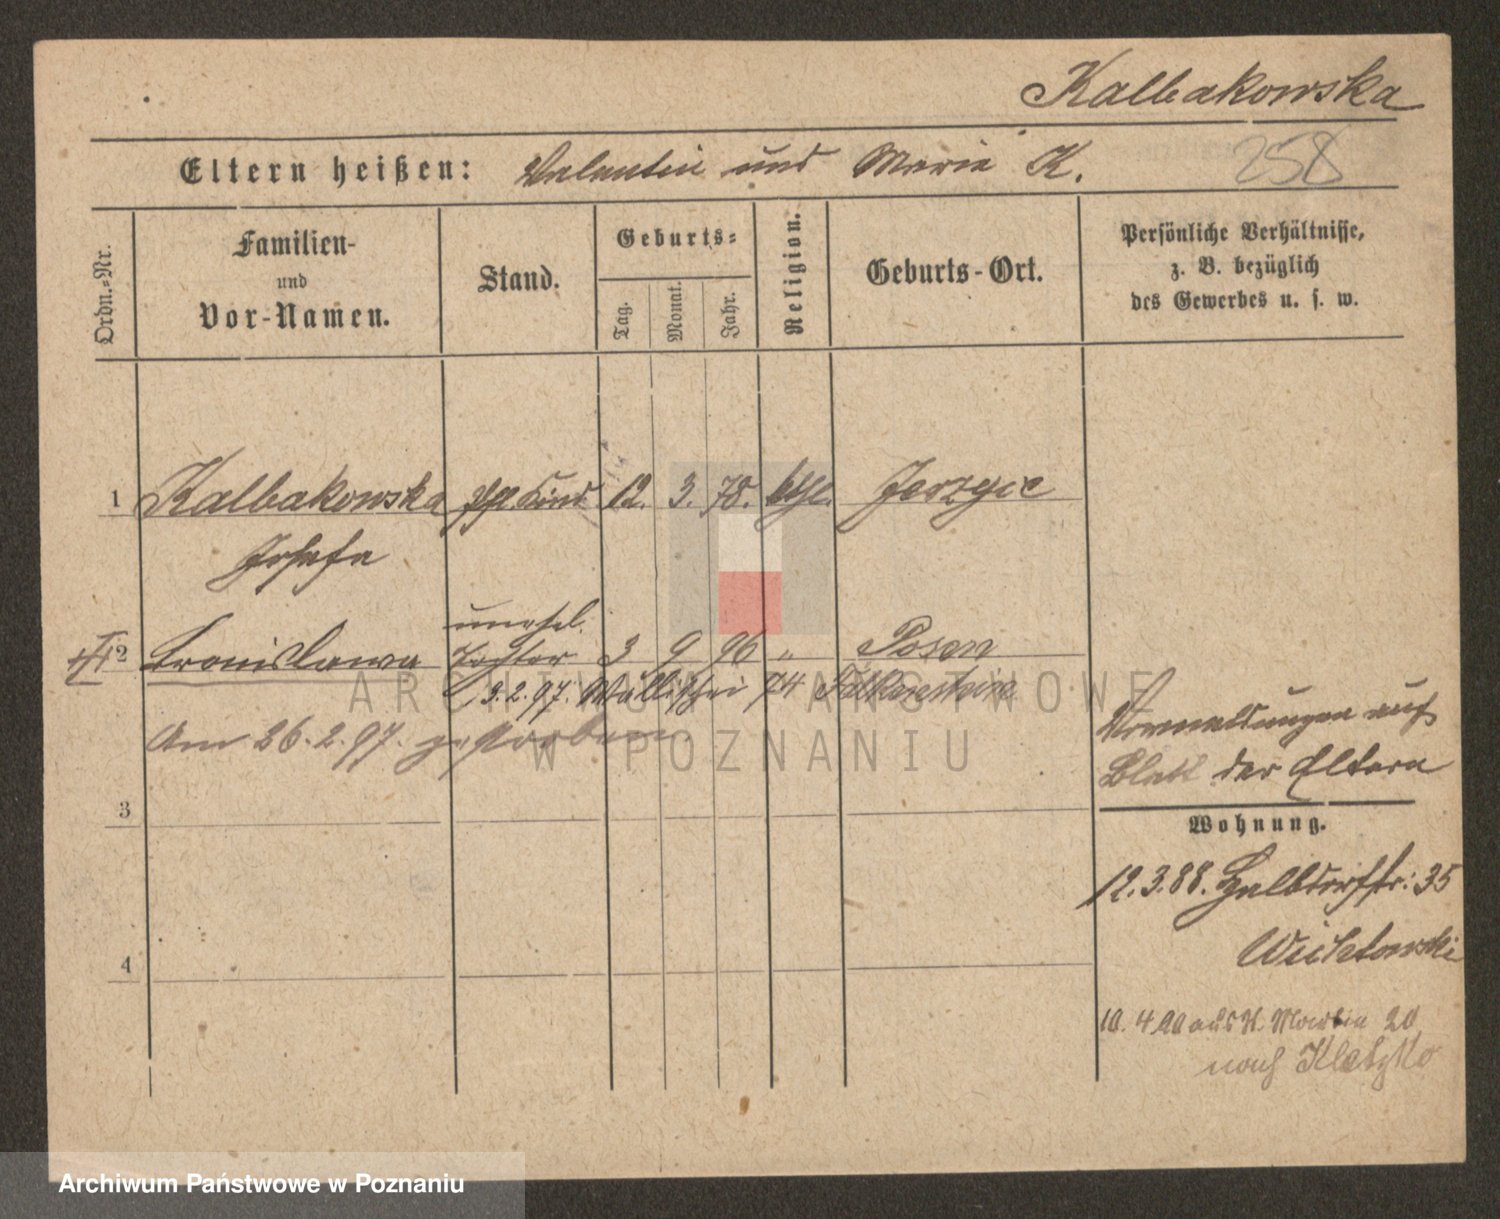 Kalbakowska
Eltern heißen: Valentin und Marie K. 258
Ordn.-Nr.
Familien-
und
Vor-Namen.
Stand.
Geburts-
Tag.
Monat.
Jahr.
Religion.
Geburts-Ort.
Persönliche Verhältnisse,
z. B. bezüglich
des Gewerbes u. s. w.
1 Kalbakowska pfl. Kind 12. 3. 78. kth. Jerzyce
Josefa
unehel.
2 Bronislawa Tochter 3 9 96 " Posen
3.2.97. Wallischei 74 Falkenstein
Am 26.2.97. gestorben
3
4
Vermeldungen auf
Blatt der Eltern
Wohnung.
12.3.88. Halbdorfstr: 35
10. 4 90 aus St. Martin 20
nach Kletzko
ARCHIWUM PAŃSTWOWE
W POZNANIU
Archiwum Państwowe w Poznaniu